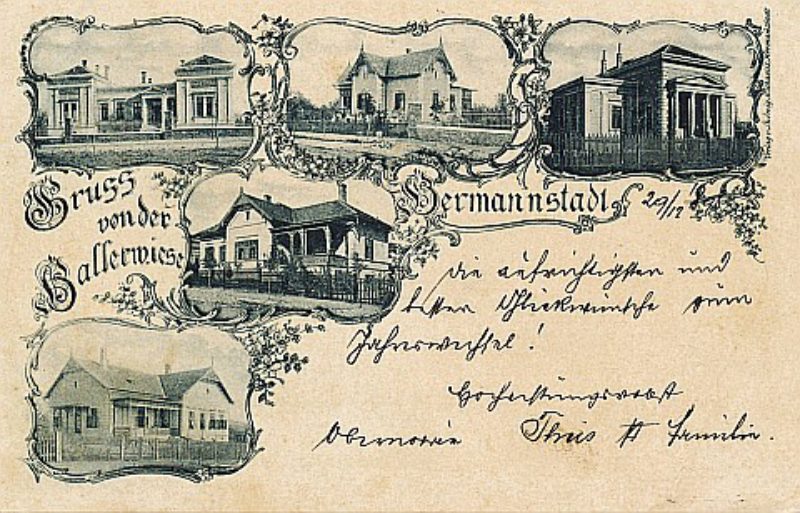 Gruss
von der
Hallerwiese
Hermannstadt, 29/12
Die aufrichtigsten und
besten Glückwünsche zum
Jahreswechsel!
Hochachtungsvollst
Familie.